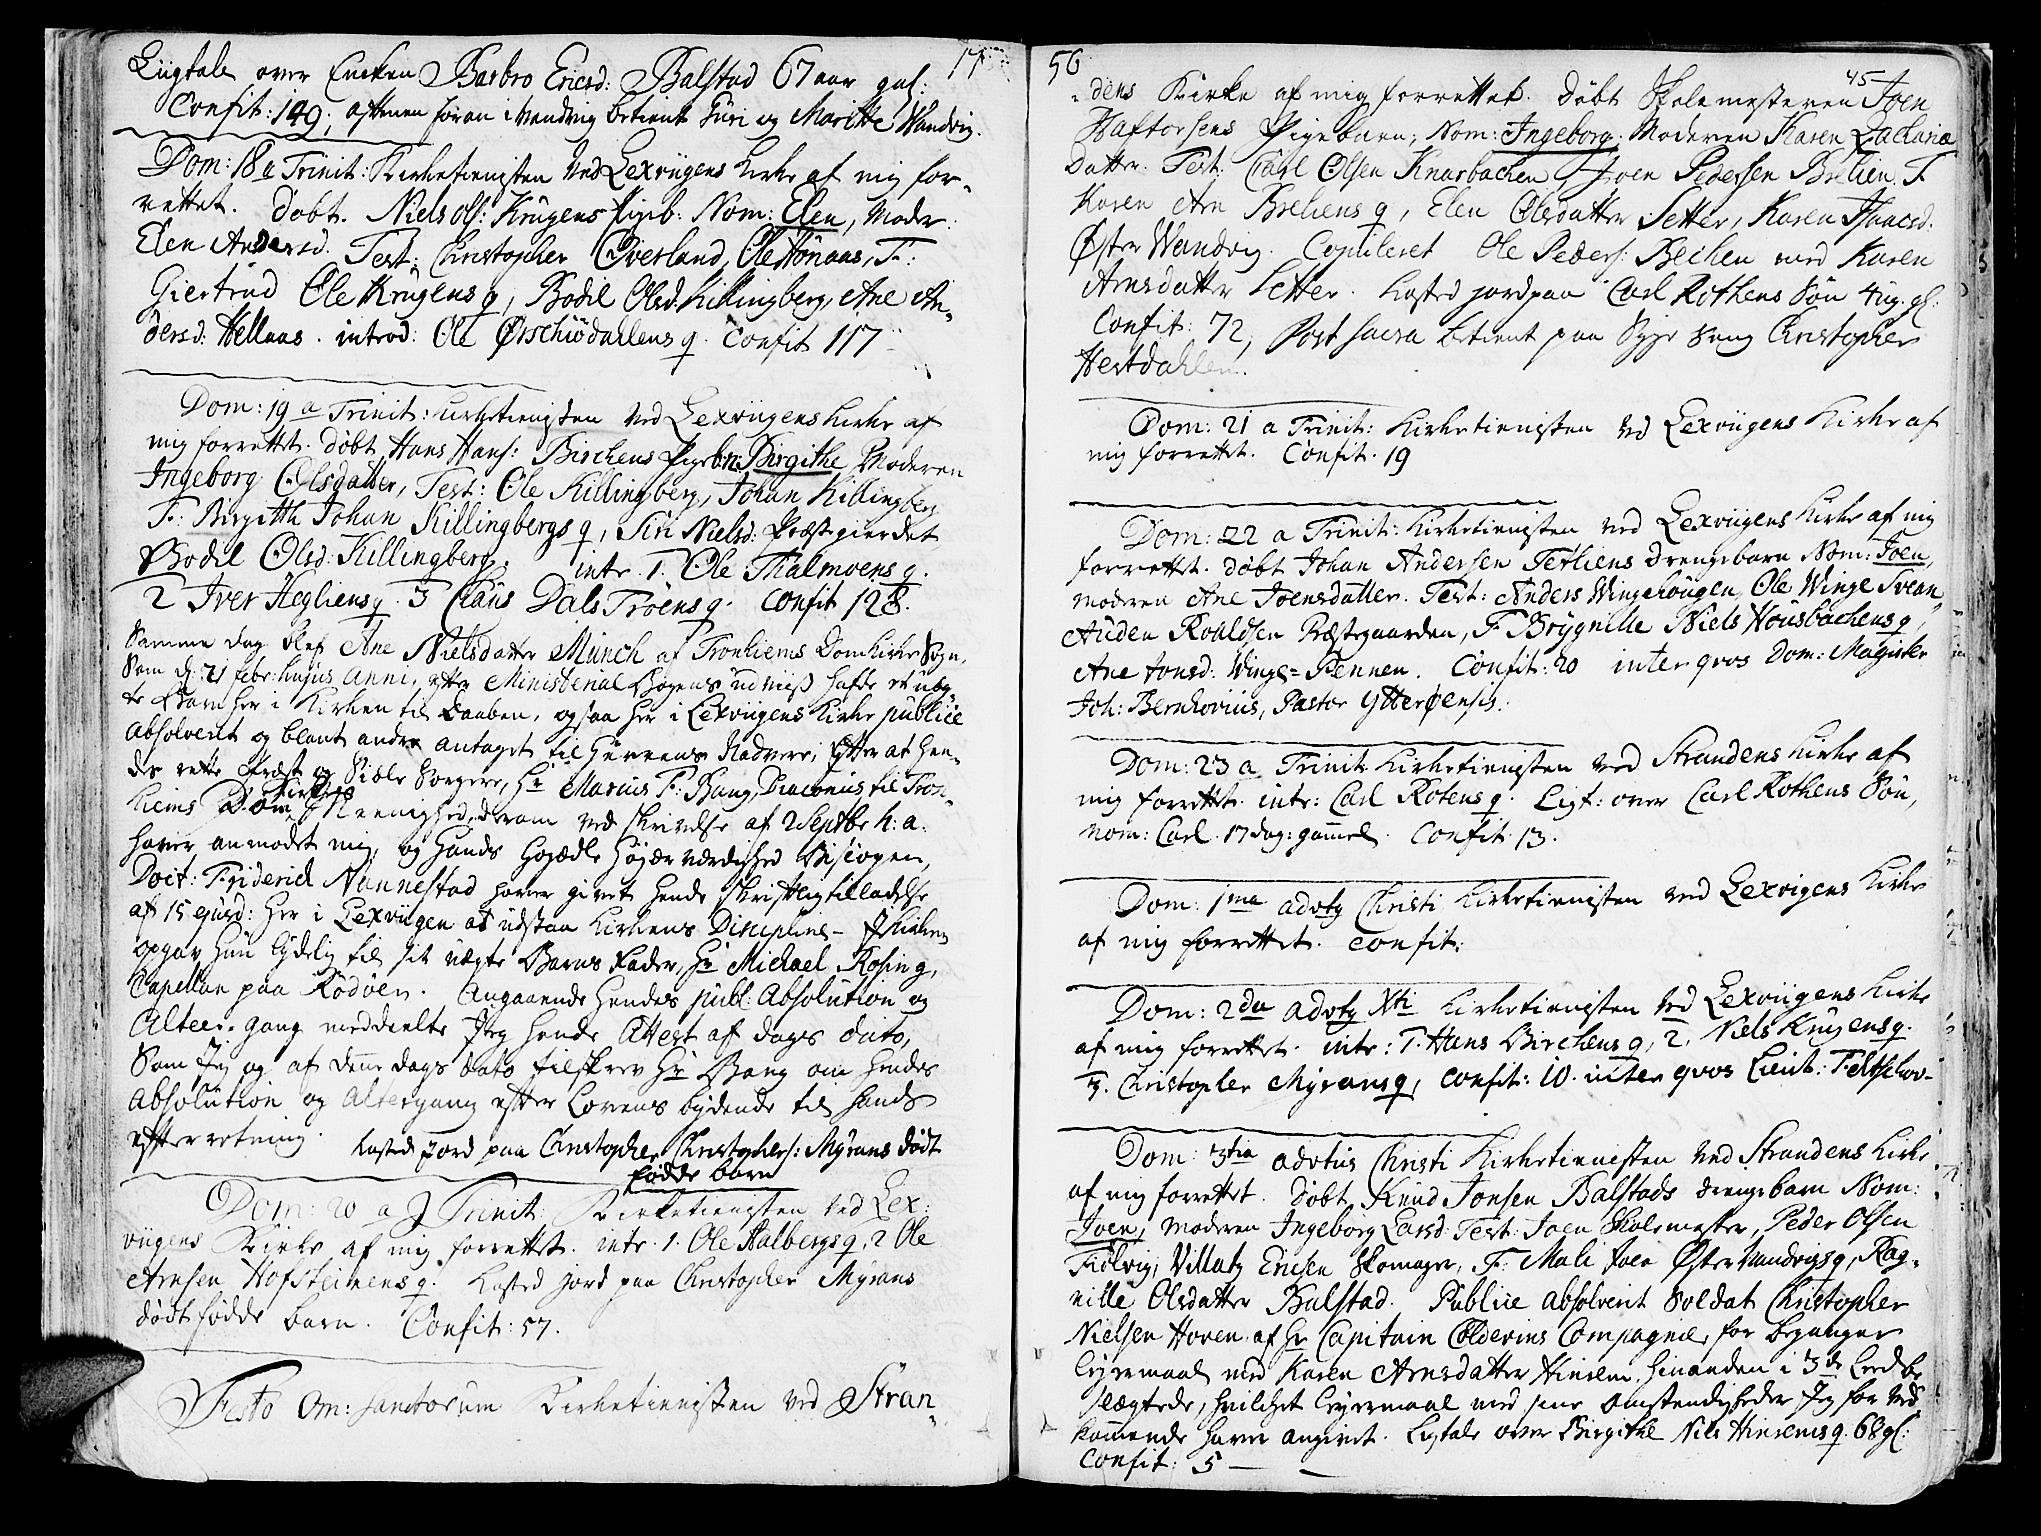 Liigtale over Encken Barbro Ericsd: Balstad 67 aar gal:
Confit: 149; afftenen foran i Wandvig betient Siri og Maritte Wandvig.
Dom: 18 a Trinit: Kirketienisten ved Lexviigens Kirke af mig for-
rettet. Døbt. Niels Ols: Krügens Pigeb: Nom: Elen, Moder
Elen Andersd. Test: Christopher Øverland, Ole Hønaas, F:
Giertrud Ole Krügens q, Bodil Olsd. Killingberg, Ane An-
dersd: Hellaas. introd: Ole Ørschiødahlens q. Confit 117
Dom: 19 a Trinit: Kirketienisten ved Lexviigens Kirke af
mig forrettet. Døbt Hans Hans: Birchens Pigebn: Birgithe Moderen
Ingeborg Olsdatter, Test: Ole Killingberg, Johan Killingberg
F: Birgitth Johan Killingbergs q, Siri Nielsd: Præstgierdet
Bodil Olsd: Killingberg. intr. 1. Ole Thalmoens q.
2 Iver Hegliens q. 3 Claus Dals Trøens q. Confit 128.
Samme dag blef Ane Nielsdatter Münch af Tronhiems Domkirke Sogn,
Som d: 21 febr: hujus Anni, efter Ministerial Bogens udviis hafde et uæg-
te Barn her i Kirken til Daaben, ogsaa her i Lexviigens Kirke publice
absolverit og blant andre antaget til Herrens Nadvere; Efter at hen-
des rette Præst og Siæle Sørgere, Hr Marius F: Bang, Diaconus til Tron-
hiems Dom Kirkes Meenighed, derom ved skrivelse af 2 Septbr h: a:
haver anmodet mig, og Hands Højædle Højærværdighed Biscopen,
Doct: Friderich Nannestad haver givet hende skriftlig tilladelse
af 15 ejusd: her i Lexviigen at udstaa Kirkens Disciplin - I Kirken
opgav hun lydelig til sit uægte Barns Fader, Hr Michael Rosing,
Capellan paa Rødøen. Angaaende hendes publ: Absolution og
Alter-gang meddeelte Jeg hende Attest af dags dato,
Som Jeg og af denne dags dato tilskrev Hr Bang om hendes
Absolution og Altergang efter Lovens bydende til hands
efterretning. Kasted Jord paa Christopher Christophers: Myrans dødt
fødde barn
Dom: 20 a Trinit: Kirketienisten ved Lex:
viigens Kirke af mig forrettet. intr. 1. Ole Halbergs q, 2 Ole
Arnsen Hofsteinens q. Kasted jord paa Christopher Myrans
dødt fødde barn. Confit: 57.
Festo Om: Sanctorum Kirketienisten ved Stran-
56
45
dens Kirke af mig forrettet. Døbt Skolemesteren Joen
Haftorsens Pigebarn; Nom: Ingeborg. Moderen Karen Zacharia
Datter. Test: Carl Olsen Knarbachen, Joen Pedersen Brelien. F.
Karen Arn Breliens q, Elen Olsdatter Setter, Karen Isaacsd.
Øster Wandvig. Copuleret Ole Peders: Bechen med Karen
Arnsdatter Setter. Kasted jord paa Carl Rothens Søn 4 ug. gl:
Confit: 72, Post sacra betient paa Syge Seng Christopher
Hestdahlen.
Dom: 21 a Trinit: Kirketienisten ved Lexviigens Kirke af
mig forrettet. Confit. 19
Dom: 22 a Trinit: Kirketienisten ved Lexviigens Kirke af mig
forrettet. Døbt Johan Andersen Tetliens Drengebarn Nom: Joen,
moderen Ane Joensdatter. Test: Anders Wingehougen, Ole Winge Svean,
Auden Roaldsen Præstegaarden, F. Brygnille Niels Housbachens q,
Ane Jonsd: Winge-Pennen. Confit: 20 inter qvos Dom: Magister
Joh: Bernhovius, Pastor Ytterøensis.
Dom: 23 a Trinit. Kirketienisten ved Strandens Kirke af
mig forrettet. intr: Carl Rotens q. Ligt: over Carl Rothens Søn,
nom: Carl. 17 dag: gammel. Confit 13.
Dom: 1me advtg Christi Kirketienisten ved Lexvigens Kirke
af mig forrettet. Confit:
Dom: 2da advtg Xti Kirketienisten ved Lexviigens Kirke
af mig forrettet. intr: 1. Hans Birchens q, 2. Niels Krygens q.
3. Christopher Myrans q, Confit: 10. inter qvos Lieut:
Dom: 3tia advtus Christi Kirketienisten ved Strandens Kirke
af mig forrettet. Døbt Knud Jonsen Balstads Drengebarn Nom:
Joen, Moderen Ingeborg Larsd: Test: Joen Skolemester, Peder Olsen
Fiølvig, Villatz Ericsen Skomager, F: Mali Joen Øster Wandvigs q, Rag-
nille Olsdatter Balstad. Publice absolverit Soldat Christopher
Nielsen Hoven af Hr Capitain Coldevins Compagnie, for begangen
Leyermaal med Karen Arnsdatter Hinsem, hinanden i 3de Leed be-
slægtede, hvilchet leyermaal med sine omstendigheder Jeg for ved-
kommende haver angivet. Ligtale over Birgithe Nils Hinsems q. 68 gl:
Confit: 5 —